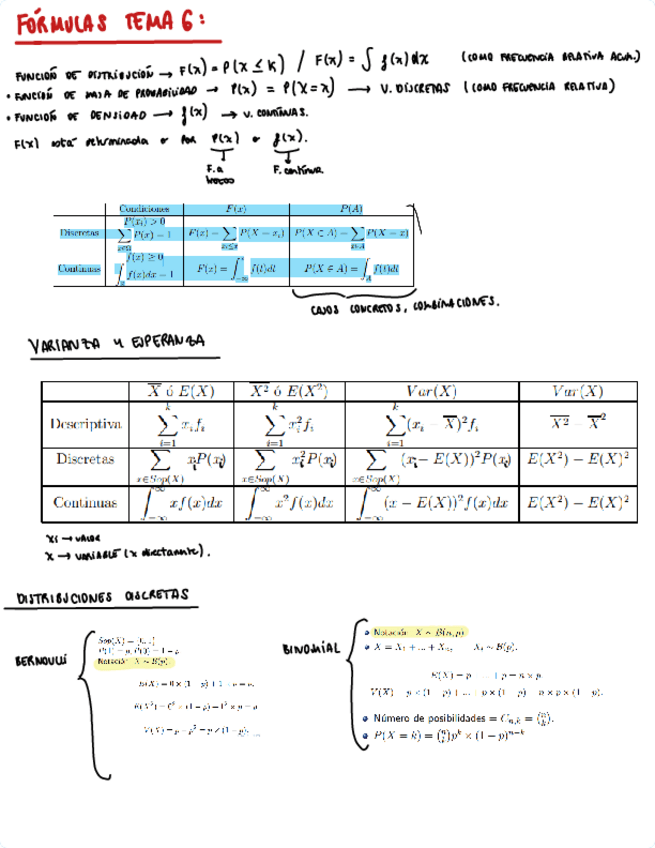 FÓRMULAS TEMA 6:
FUNCIÓN DE DISTRIBUCIÓN → F(x) = P(X ≤ k) / F(x) = ∫ f(x) dx (COMO FRECUENCIA RELATIVA ACUM.)
• FUNCIÓN DE MASA DE PROBABILIDAD → P(x) = P(X=x) → V. DISCRETAS (COMO FRECUENCIA RELATIVA)
• FUNCIÓN DE DENSIDAD → f(x) → V. CONTINUAS.
F(x) está determinada o por P(x) o f(x).
F. a trozos
F. continua.
Condiciones F(x) P(A)
P(xᵢ) > 0
Discretas ∑ P(x) = 1 F(x) = ∑ P(X = xᵢ) P(X ⊂ A) = ∑ P(X = x)
f(x) ≥ 0
Continuas ∫ f(x)dx = 1 F(x) = ∫ f(t)dt P(X ∈ A) = ∫_A f(t)dt
CASOS CONCRETOS, COMBINACIONES.
VARIANZA Y ESPERANZA
X̅ ó E(X) X̅² ó E(X²) Var(X) Var(X)
Descriptiva ∑_{i=1}^{k} xᵢfᵢ ∑_{i=1}^{k} xᵢ²fᵢ ∑_{i=1}^{k} (xᵢ − X̅)²fᵢ \overline{X²} − \overline{X}²
Discretas ∑_{x∈Sop(X)} xᵢP(xᵢ) ∑_{x∈Sop(X)} xᵢ²P(xᵢ) ∑_{x∈Sop(X)} (xᵢ − E(X))²P(xᵢ) E(X²) − E(X)²
Continuas ∫_{−∞}^{∞} xf(x)dx ∫_{−∞}^{∞} x²f(x)dx ∫_{−∞}^{∞} (x − E(X))²f(x)dx E(X²) − E(X)²
xi → VALOR
x → VARIABLE (x directamente).
DISTRIBUCIONES DISCRETAS
BERNOULLI
Notación X ~ B(p).
BINOMIAL
• Notación: X ~ B(n, p)
• X = X₁ + ... + Xₙ, Xᵢ ~ B(p).
E(X) = p ... + p = n × p.
V(X) = p × (1 − p) + ... + p × (1 − p) = n × p × (1 − p).
• Número de posibilidades = C_{n,k} = \binom{n}{k}.
• P(X = k) = \binom{n}{k} p^k × (1 − p)^{n−k}